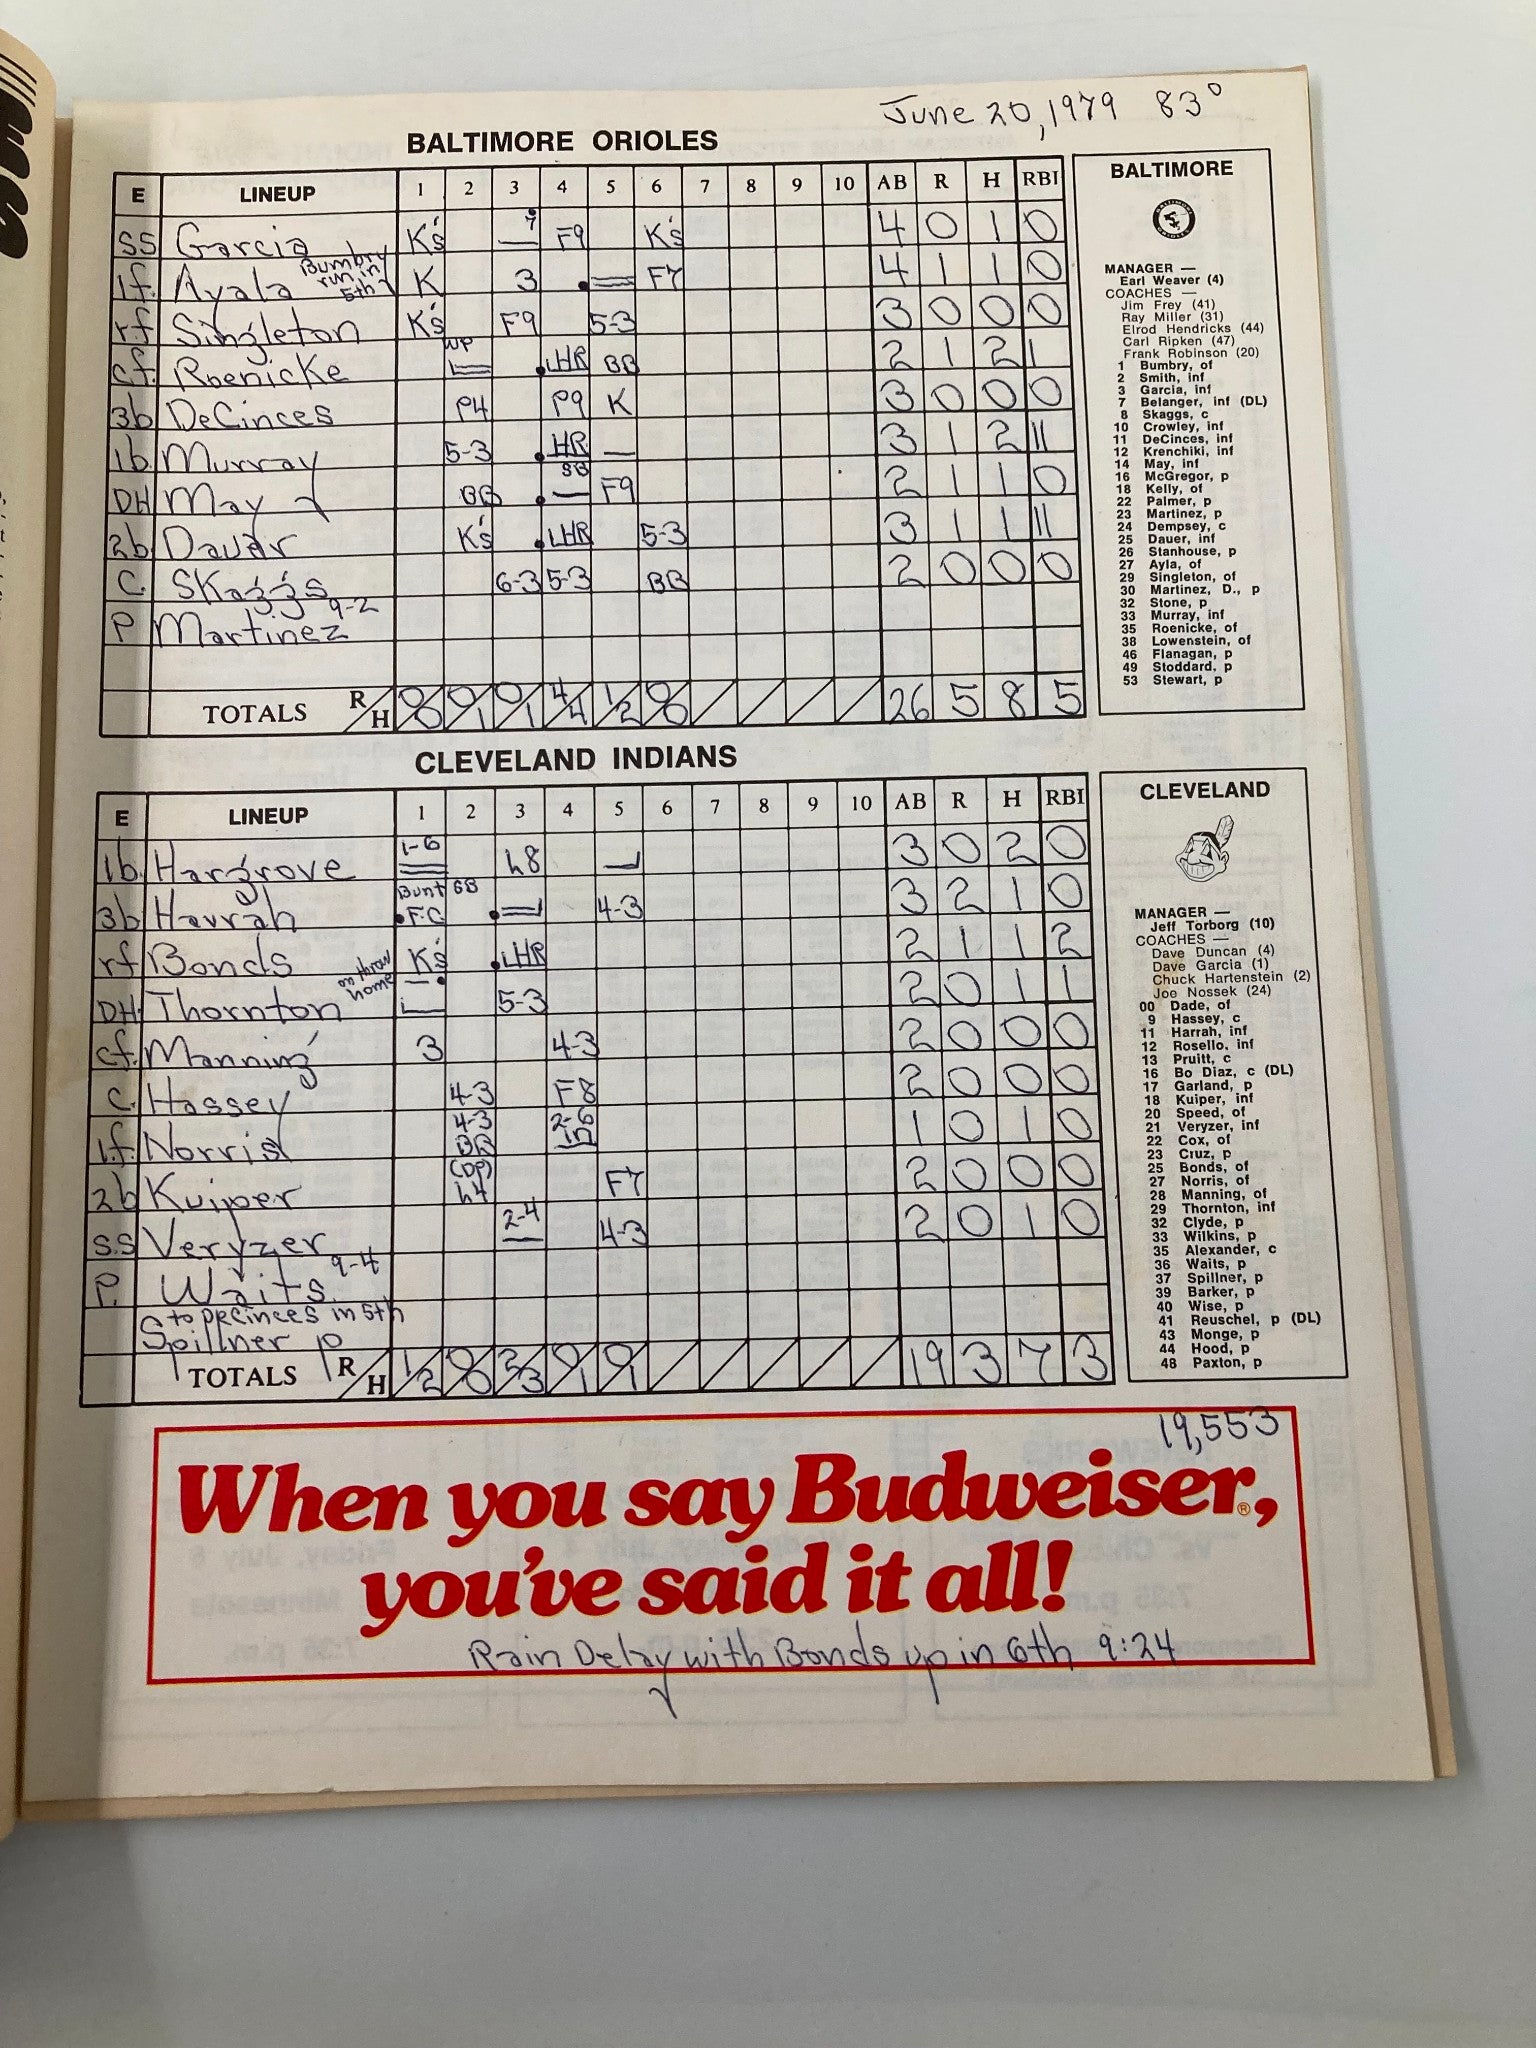 June 20, 1979 83°
BALTIMORE ORIOLES
E LINEUP 1 2 3 4 5 6 7 8 9 10 AB R H RBI
SS Garcia K's 7 F9 K's 4 0 1 0
lf. Ayala Bumbry run in 5th K 3 F7 4 1 1 0
rf Singleton K's F9 5-3 3 0 0 0
cf. Roenicke WP LHR BB 2 1 2 1
3b DeCinces P4 P9 K 3 0 0 0
1b Murray 5-3 HR 3 1 2 11
DH May BB SB F9 2 1 1 0
2b Dauer K's LHR 5-3 3 1 1 11
C. Skaggs 6-3 5-3 BB 2 0 0 0
P Martinez 9-2
TOTALS R/H 0/0 0/1 0/1 4/4 1/2 0/0 26 5 8 5
BALTIMORE
MANAGER —
Earl Weaver (4)
COACHES —
Jim Frey (41)
Ray Miller (31)
Elrod Hendricks (44)
Carl Ripken (47)
Frank Robinson (20)
1 Bumbry, of
2 Smith, inf
3 Garcia, inf
7 Belanger, inf (DL)
8 Skaggs, c
10 Crowley, inf
11 DeCinces, inf
12 Krenchiki, inf
14 May, inf
16 McGregor, p
18 Kelly, of
22 Palmer, p
23 Martinez, p
24 Dempsey, c
25 Dauer, inf
26 Stanhouse, p
27 Ayla, of
29 Singleton, of
30 Martinez, D., p
32 Stone, p
33 Murray, inf
35 Roenicke, of
38 Lowenstein, of
46 Flanagan, p
49 Stoddard, p
53 Stewart, p
CLEVELAND INDIANS
E LINEUP 1 2 3 4 5 6 7 8 9 10 AB R H RBI
1b Hargrove 1-6 L8 3 0 2 0
3b Harrah Bunt GB F.C. 4-3 3 2 1 0
rf Bonds K's LHR 2 1 1 2
DH Thornton on throw home 5-3 2 0 1 1
cf. Manning 3 4-3 2 0 0 0
C. Hassey 4-3 F8 2 0 0 0
l.f. Norris 4-3 BB 2-6 in 1 0 1 0
2b Kuiper (DP) L4 F7 2 0 0 0
S.S Veryzer 2-4 4-3 2 0 1 0
P. Waits 9-4
to DeCinces in 5th
Spillner p
TOTALS R/H 1/2 0/0 2/3 0/1 0/1 19 3 7 3
CLEVELAND
MANAGER —
Jeff Torborg (10)
COACHES —
Dave Duncan (4)
Dave Garcia (1)
Chuck Hartenstein (2)
Joe Nossek (24)
00 Dade, of
9 Hassey, c
11 Harrah, inf
12 Rosello, inf
13 Pruitt, c
16 Bo Diaz, c (DL)
17 Garland, p
18 Kuiper, inf
20 Speed, of
21 Veryzer, inf
22 Cox, of
23 Cruz, p
25 Bonds, of
27 Norris, of
28 Manning, of
29 Thornton, inf
32 Clyde, p
33 Wilkins, p
35 Alexander, c
36 Waits, p
37 Spillner, p
39 Barker, p
40 Wise, p
41 Reuschel, p (DL)
43 Monge, p
44 Hood, p
48 Paxton, p
19,553
When you say Budweiser,
you've said it all!
Rain Delay with Bonds up in 6th 9:24